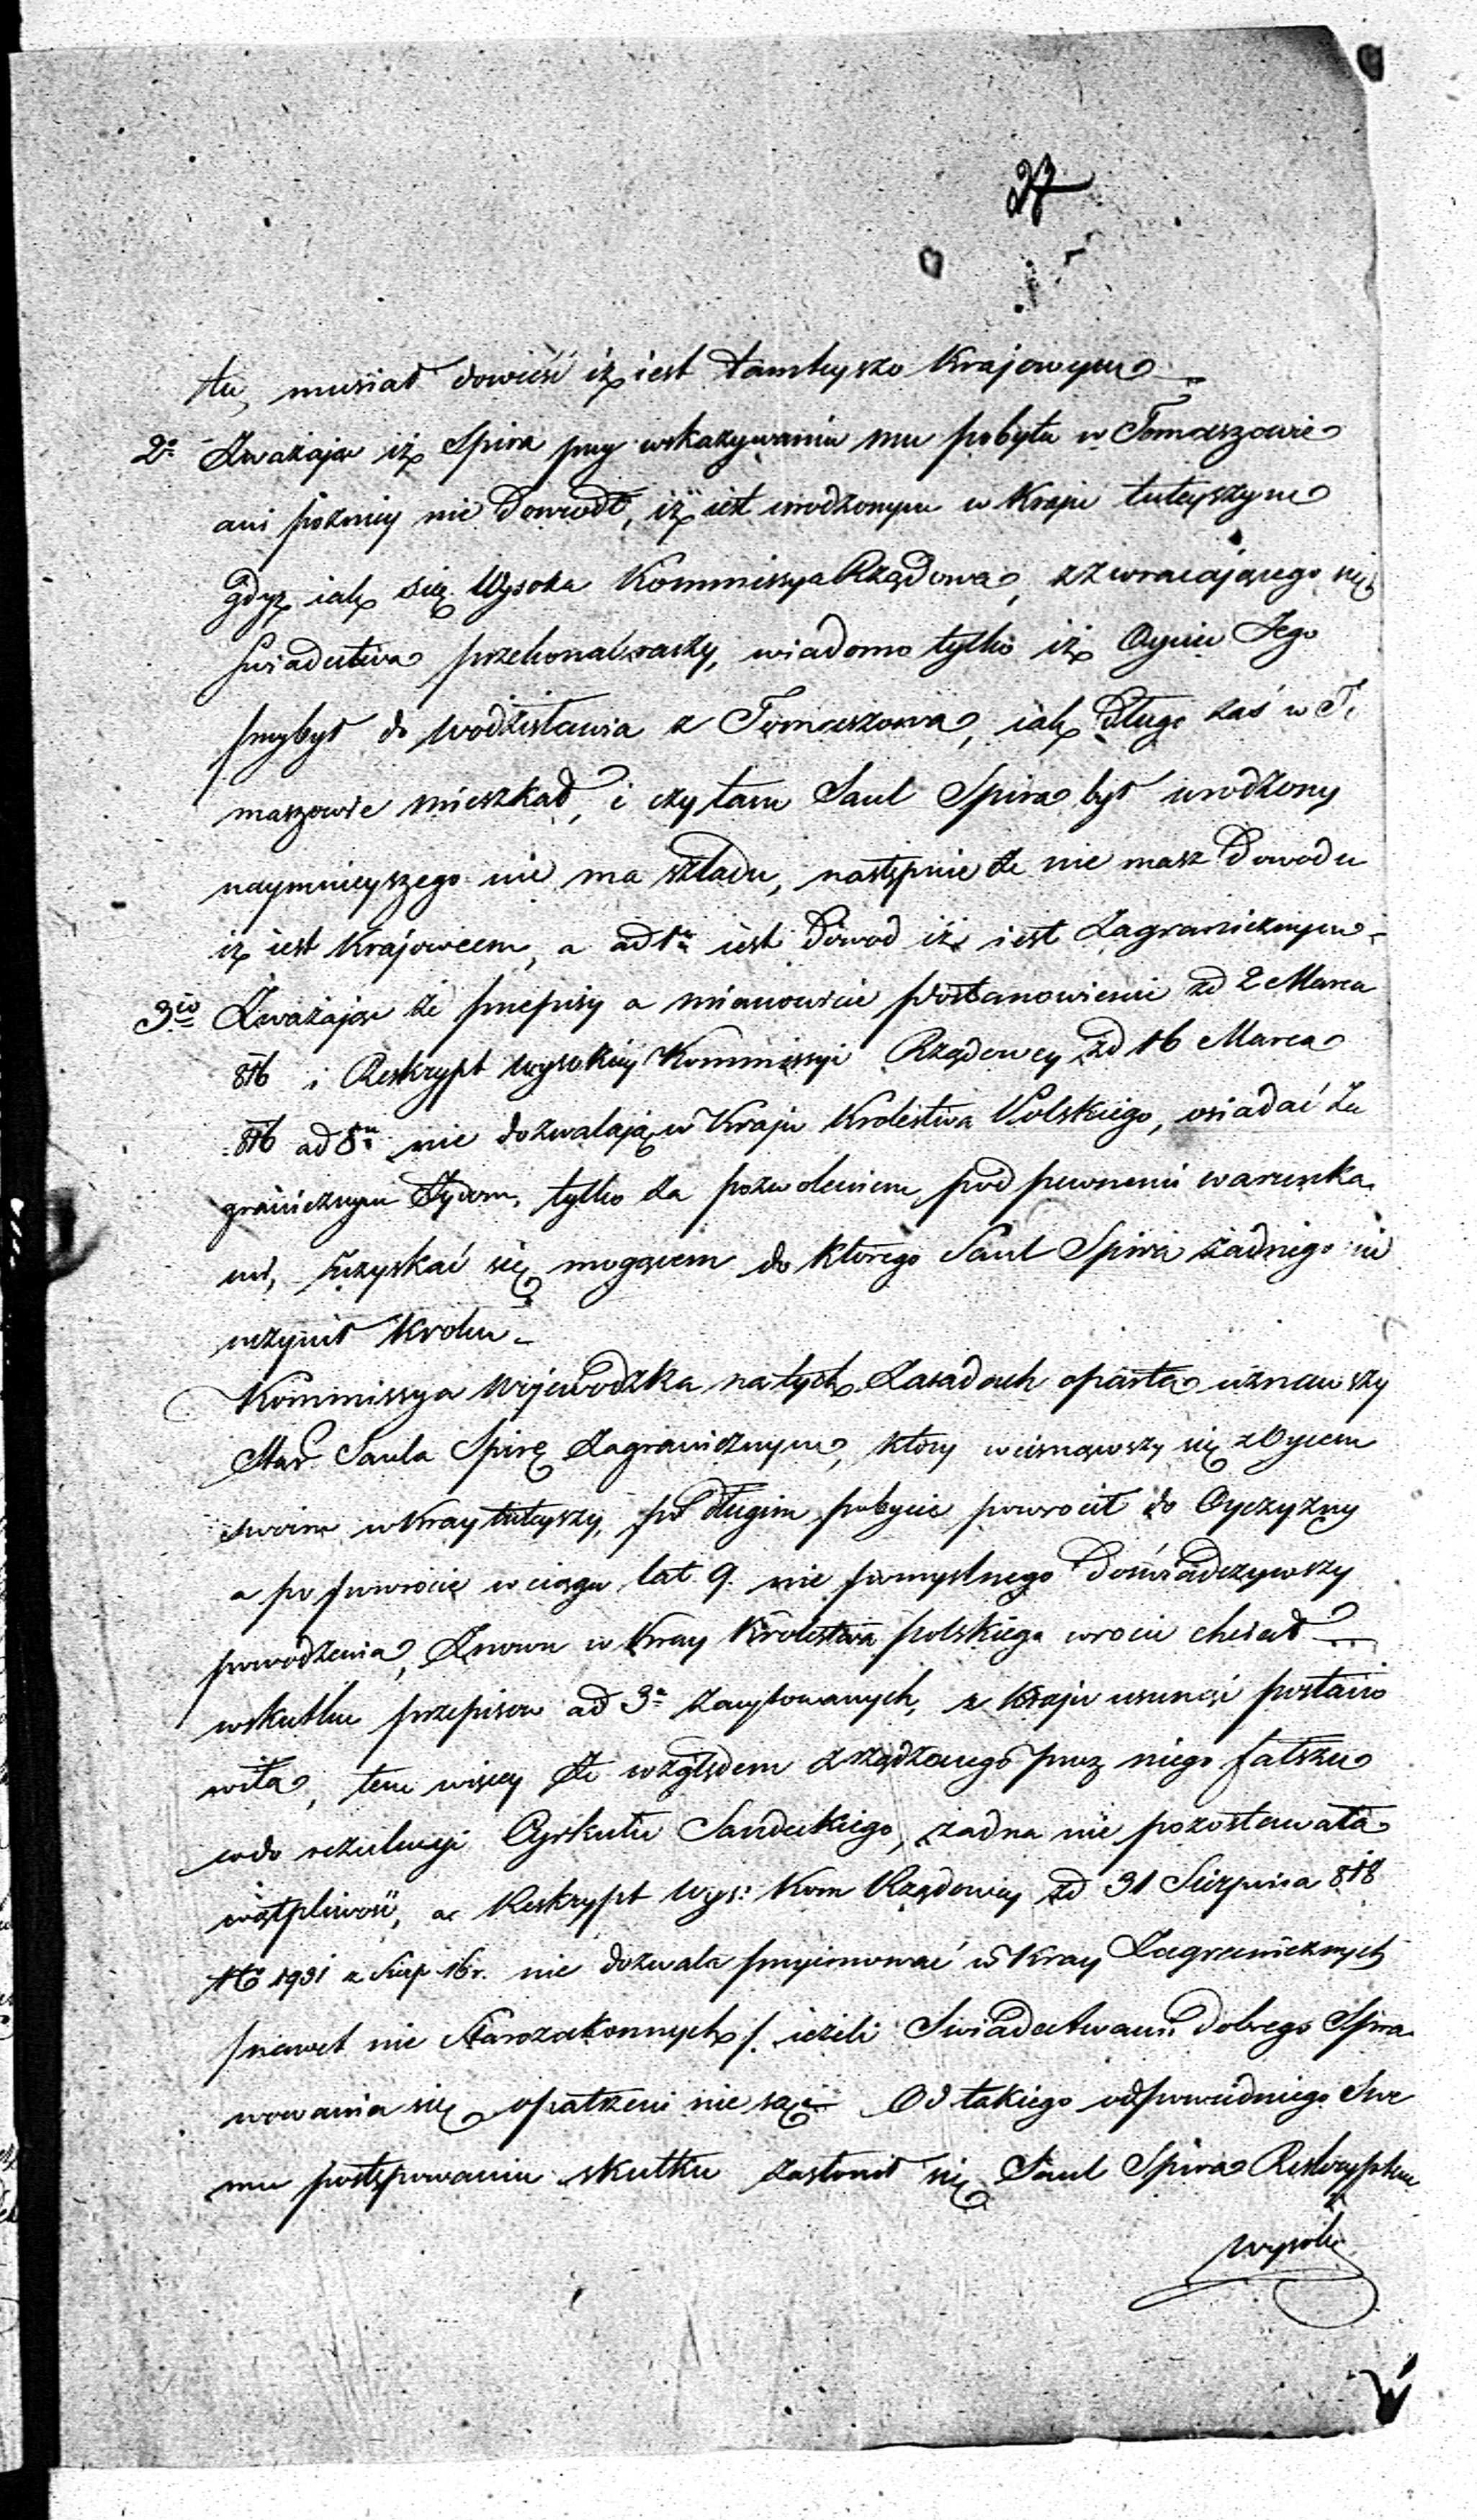 27
tu, musiał dowieść iż iest tamteyszo Krajowym
2o Zważając iż Spira przy wskazywaniu mu pobytu w Tomaszowie
ani poźniey nie dowiodł, iż iest urodzonym w Kraju tuteyszym
gdyż iak się Wysoka Kommissya Rządowa, z zwracaiącego się
świadectwa przekonać raczy, wiadomo tylko iż Oyciec Jego
przybył do Wodzisławia z Tomaszowa, iak długo zaś w To
maszowie mieszkał, i czy tam Saul Spira był urodzony
naymnieyszego nie ma szladu, następnie że nie masz dowodu
iż iest Krajowcem, a ad 1m iest dowod iż iest Zagranicznym
3cio Zważając że przepisy a mianowicie postanowienie zd 2 Marca
816 i Reskrypt wysokiey Kommissyi Rządowey zd 16 Marca
816 ad 8m nie dozwalają w Kraju Krolestwa Polskiego, osiadać Za
granicznym Żydom, tylko za pozwoleniem, pod pewnemi warunka
mi, uzyskać się mogącem do ktorego Saul Spira żadnego nie
uczynił Kroku
Kommissya Wojewodzka na tych Zasadach oparta uznawszy
Star. Saula Spirę Zagranicznym, ktory wcisnąwszy się z Oycem
swoim w Kray tuteyszy, po długim pobycie powrocił do Oyczyzny
a po powrocie w ciągu lat 9. nie pomyslnego doświadczywszy
powodzenia, Znowu w Kray Krolestwa polskiego wrocić chciał
w skutku przepisow ad 3o zacytowanych, z Kraju usunąć postano
wiła, tem więcey że względem zrządzonego przez niego fałszu
co do rezolucyi Cyrkułu Sandeckiego, żadna nie pozostawała
wątpliwość, a Reskrypt Wys: Kom Rządowey zd 31 Sierpnia 818
No 1931 z Sierp 16 r. nie dozwala przyimować w Kray Zagranicznych
/nawet nie Starozakonnych/ ieżeli Swiadectwami dobrego Spra
wowania się opatrzeni nie są Od takiego odpowiedniego Swe
mu postępowaniu skutku zasłonił się Saul Spira Reskryptem
Wysoki